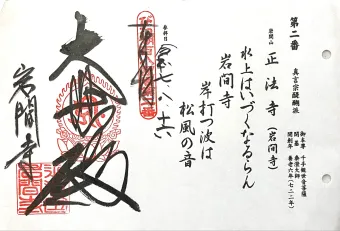 第二番
真言宗醍醐派
御本尊 千手観世音菩薩
開基 泰澄大師
開創年 養老六年(七二二年)
岩間山
正法寺(岩間寺)
水上はいづくなるらん
岩間寺
岸打つ波は
松風の音
参拝日
大悲殿
岩間寺